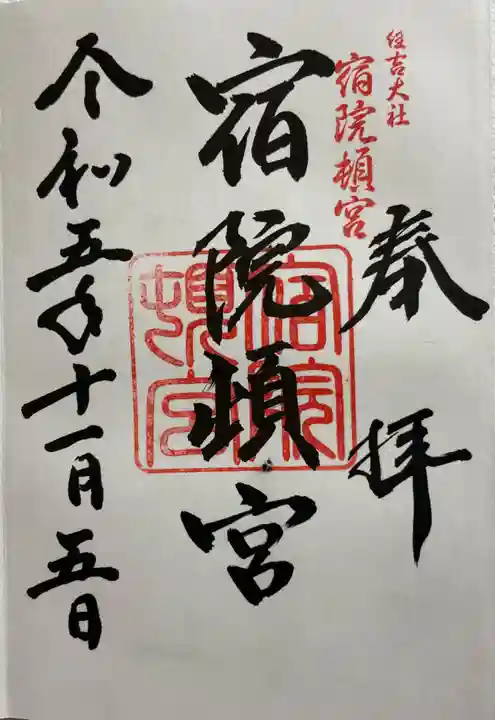 住吉大社
宿院頓宮
奉拝
宿院頓宮
宿院頓宮
令和五年十一月五日